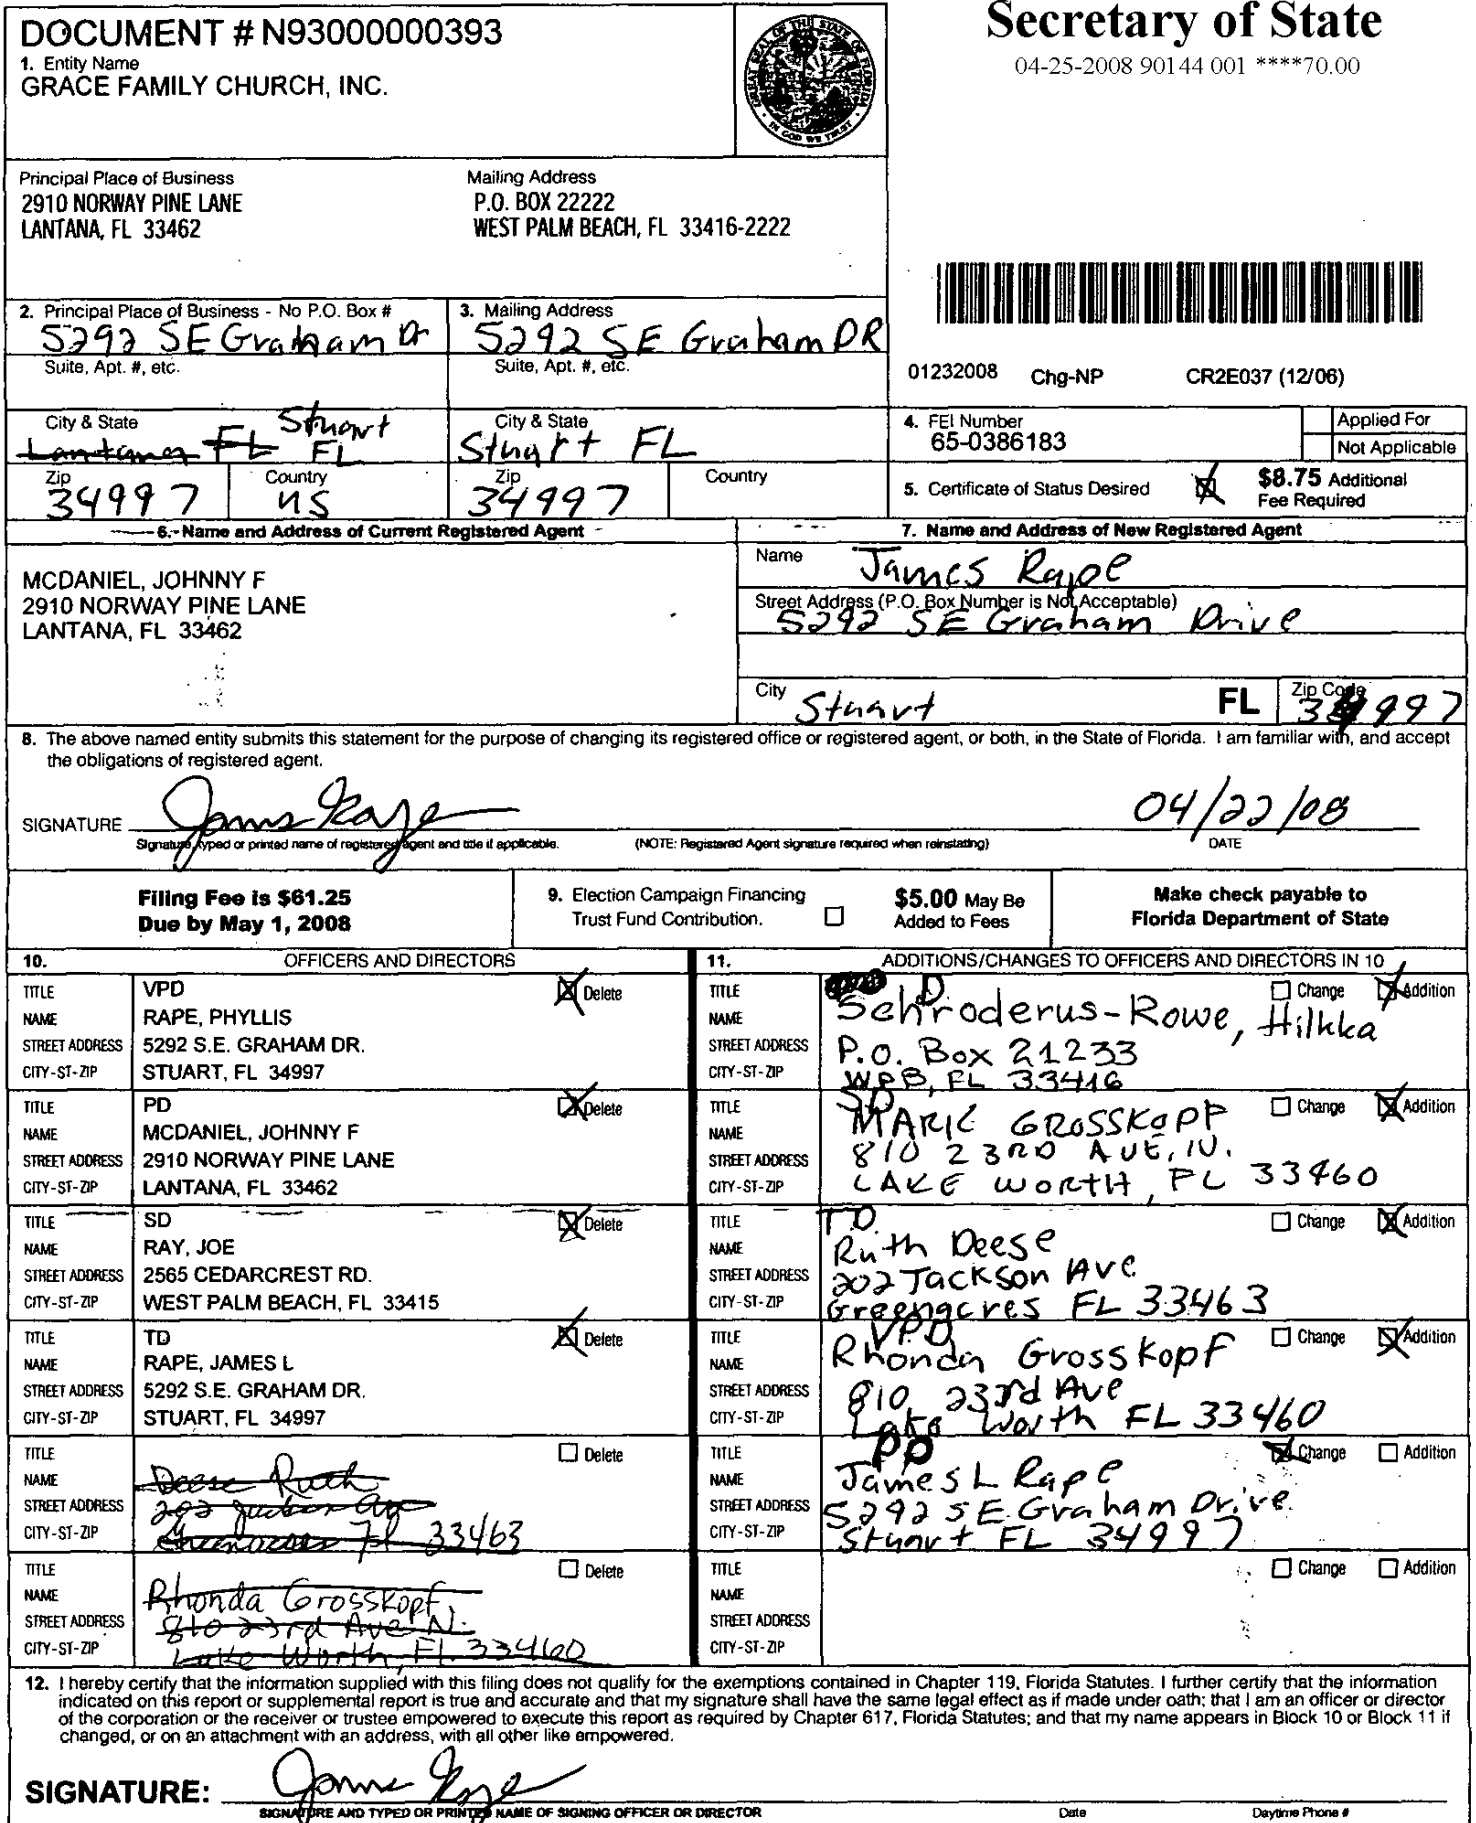 DOCUMENT # N93000000393
1. Entity Name
GRACE FAMILY CHURCH, INC.
GREAT SEAL OF THE STATE OF FLORIDA
IN GOD WE TRUST
Secretary of State
04-25-2008 90144 001 ****70.00
Principal Place of Business
2910 NORWAY PINE LANE
LANTANA, FL 33462
Mailing Address
P.O. BOX 22222
WEST PALM BEACH, FL 33416-2222
2. Principal Place of Business - No P.O. Box #
5292 SE Graham Dr
Suite, Apt. #, etc.
3. Mailing Address
5292 SE Graham DR
Suite, Apt. #, etc.
01232008 Chg-NP CR2E037 (12/06)
City & State
Lantana FL Stuart
FL
City & State
Stuart FL
Zip
34997
Country
US
Zip
34997
Country
4. FEI Number
65-0386183
Applied For
Not Applicable
5. Certificate of Status Desired
$8.75 Additional
Fee Required
6. Name and Address of Current Registered Agent
MCDANIEL, JOHNNY F
2910 NORWAY PINE LANE
LANTANA, FL 33462
7. Name and Address of New Registered Agent
Name James Rape
Street Address (P.O. Box Number is Not Acceptable)
5292 SE Graham Drive
City Stuart FL Zip Code 34997
8. The above named entity submits this statement for the purpose of changing its registered office or registered agent, or both, in the State of Florida. I am familiar with, and accept
the obligations of registered agent.
SIGNATURE James Rape 04/22/08
Signature, typed or printed name of registered agent and title if applicable. (NOTE: Registered Agent signature required when reinstating) DATE
Filing Fee is $61.25
Due by May 1, 2008
9. Election Campaign Financing
Trust Fund Contribution.
$5.00 May Be
Added to Fees
Make check payable to
Florida Department of State
10. OFFICERS AND DIRECTORS
TITLE VPD Delete
NAME RAPE, PHYLLIS
STREET ADDRESS 5292 S.E. GRAHAM DR.
CITY-ST-ZIP STUART, FL 34997
TITLE PD Delete
NAME MCDANIEL, JOHNNY F
STREET ADDRESS 2910 NORWAY PINE LANE
CITY-ST-ZIP LANTANA, FL 33462
TITLE SD Delete
NAME RAY, JOE
STREET ADDRESS 2565 CEDARCREST RD.
CITY-ST-ZIP WEST PALM BEACH, FL 33415
TITLE TD Delete
NAME RAPE, JAMES L
STREET ADDRESS 5292 S.E. GRAHAM DR.
CITY-ST-ZIP STUART, FL 34997
TITLE Delete
NAME Deese Ruth
STREET ADDRESS 202 Jackson Ave
CITY-ST-ZIP Greenacres Fl 33463
TITLE Delete
NAME Rhonda Grosskopf
STREET ADDRESS 810 23rd Ave N.
CITY-ST-ZIP Lake Worth, Fl. 33460
11. ADDITIONS/CHANGES TO OFFICERS AND DIRECTORS IN 10
TITLE D Change Addition
NAME Schroderus-Rowe, Hilkka
STREET ADDRESS P.O. Box 21233
CITY-ST-ZIP WPB, FL 33416
TITLE SD Change Addition
NAME MARK GROSSKOPF
STREET ADDRESS 810 23RD AVE, N.
CITY-ST-ZIP LAKE WORTH, FL 33460
TITLE TD Change Addition
NAME Ruth Deese
STREET ADDRESS 202 Jackson Ave
CITY-ST-ZIP Greenacres FL 33463
TITLE VPD Change Addition
NAME Rhonda Grosskopf
STREET ADDRESS 810 23rd Ave
CITY-ST-ZIP Lake Worth FL 33460
TITLE PD Change Addition
NAME James L Rape
STREET ADDRESS 5292 SE Graham Drive
CITY-ST-ZIP Stuart FL 34997
TITLE Change Addition
NAME
STREET ADDRESS
CITY-ST-ZIP
12. I hereby certify that the information supplied with this filing does not qualify for the exemptions contained in Chapter 119, Florida Statutes. I further certify that the information
indicated on this report or supplemental report is true and accurate and that my signature shall have the same legal effect as if made under oath; that I am an officer or director
of the corporation or the receiver or trustee empowered to execute this report as required by Chapter 617, Florida Statutes; and that my name appears in Block 10 or Block 11 if
changed, or on an attachment with an address, with all other like empowered.
SIGNATURE: James Rape
SIGNATURE AND TYPED OR PRINTED NAME OF SIGNING OFFICER OR DIRECTOR Date Daytime Phone #